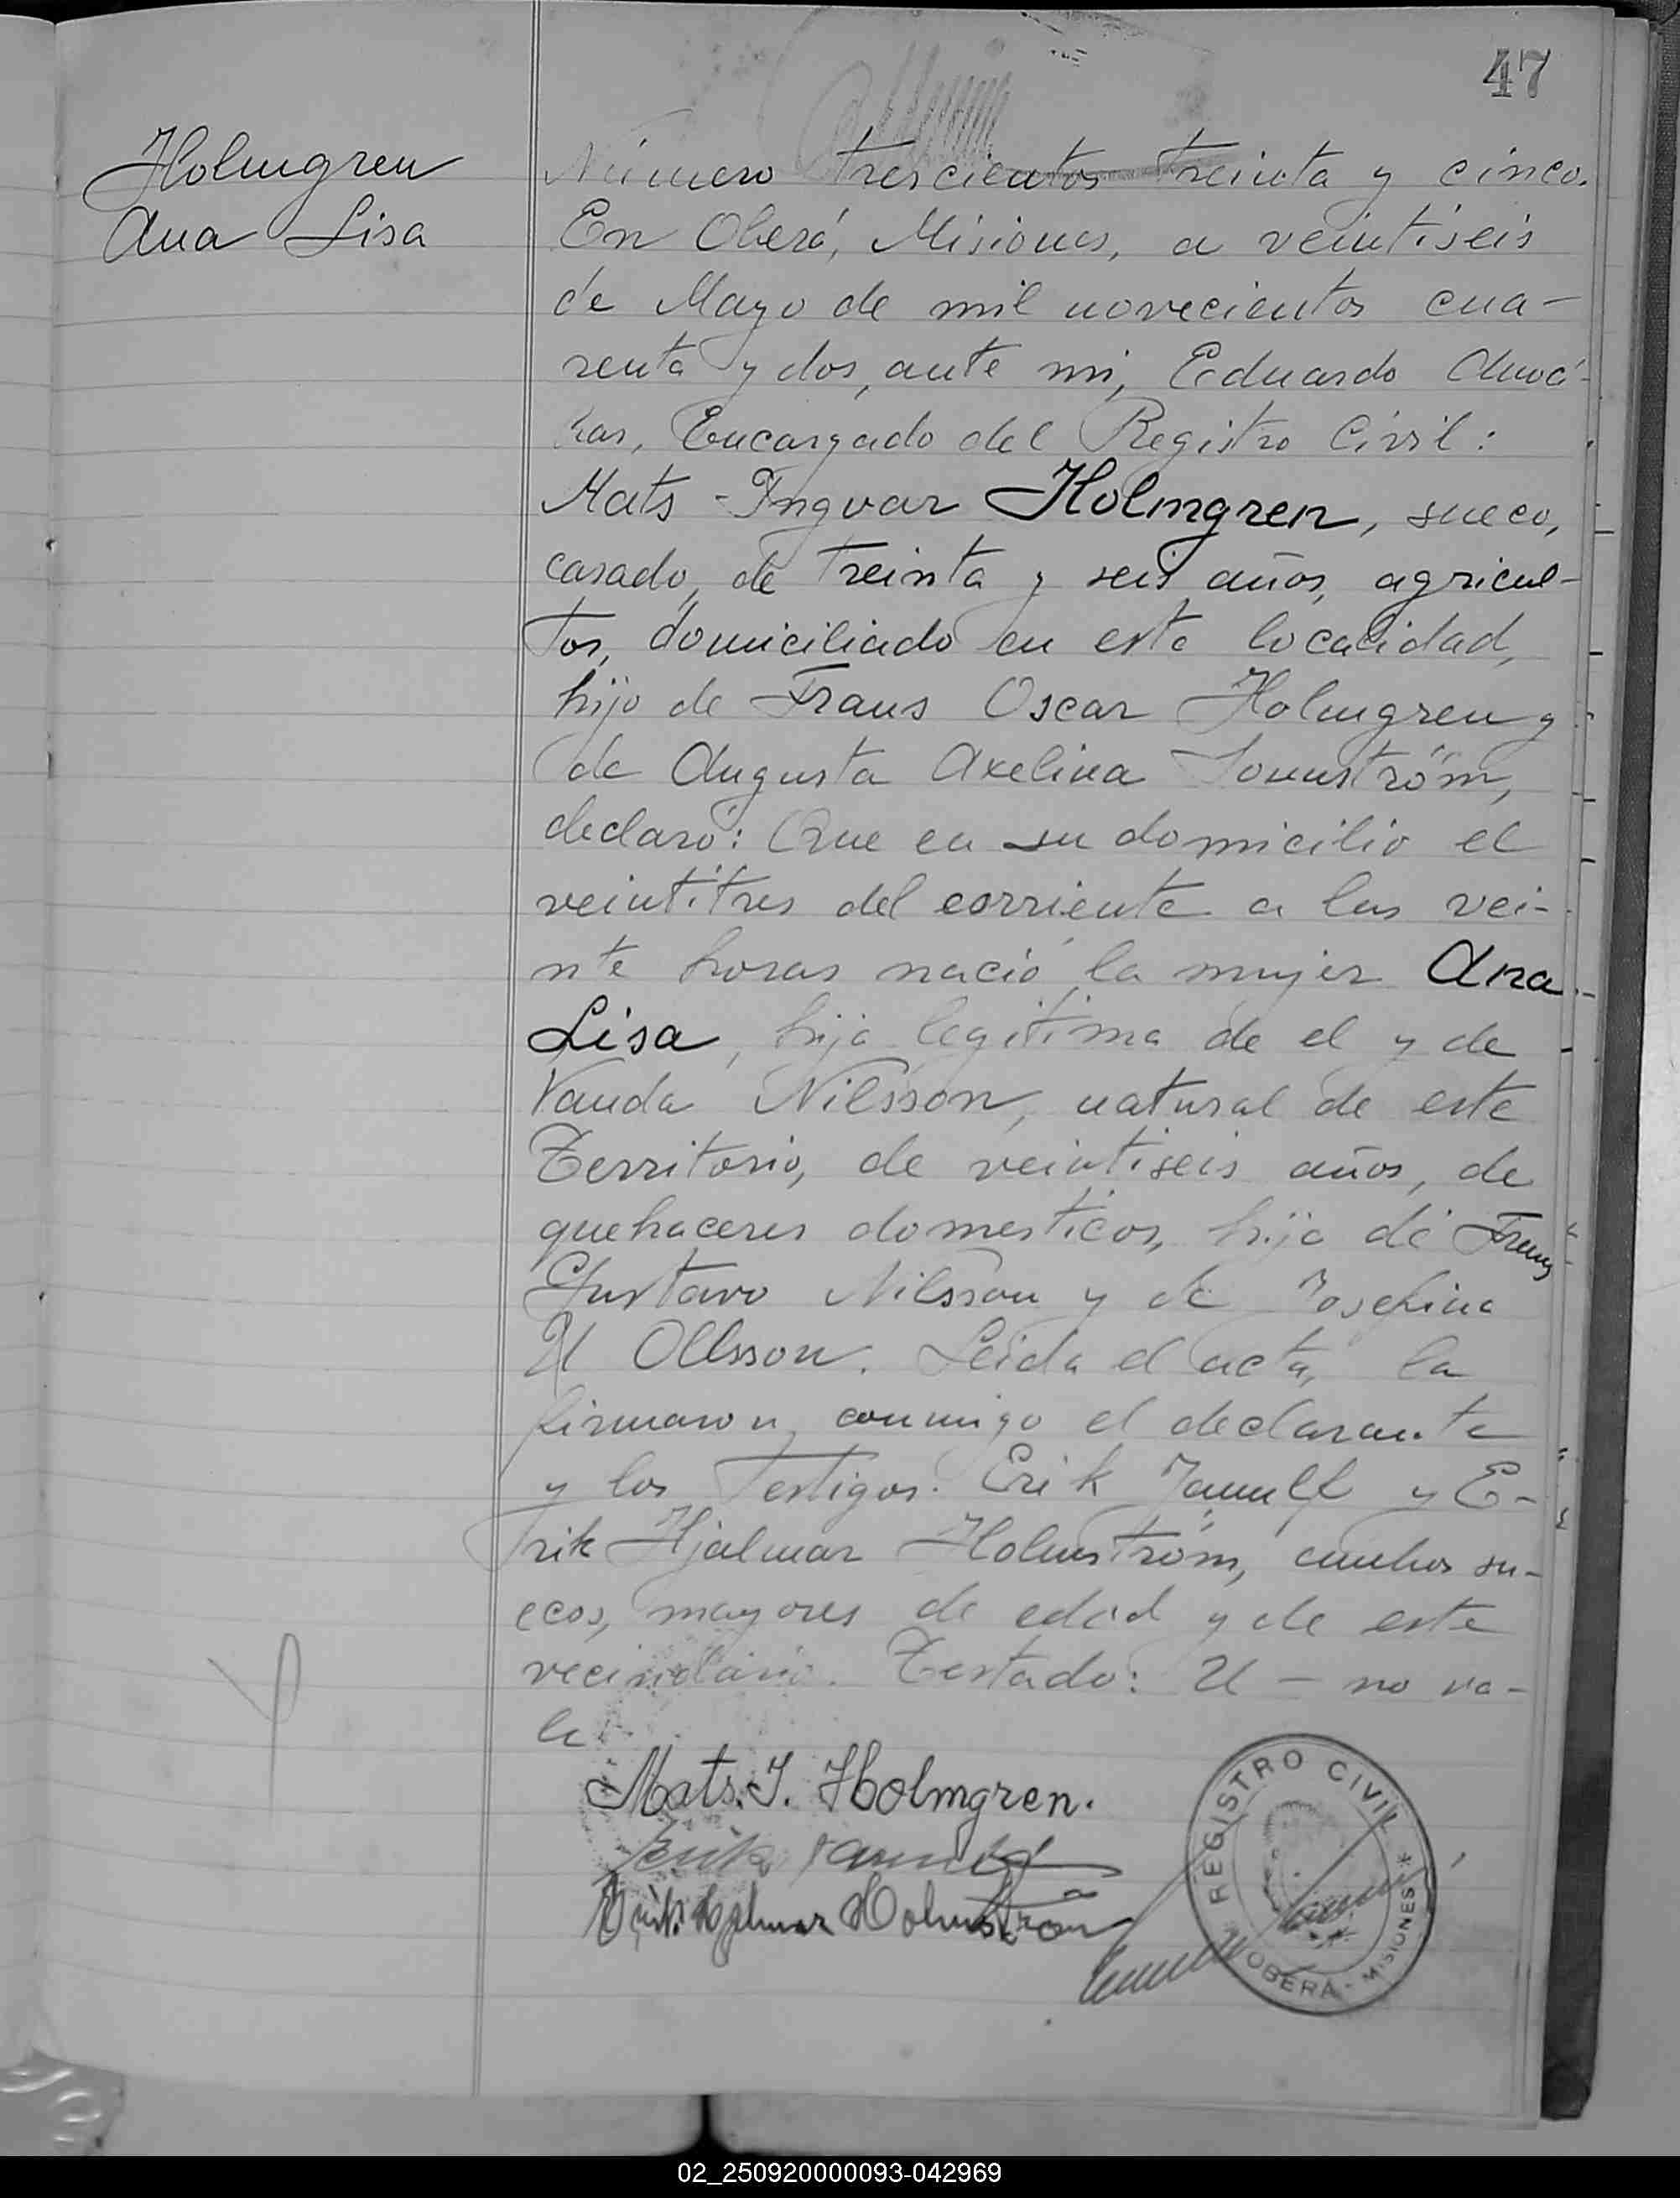 47
Holmgren
Ana Lisa
Número trescientos treinta y cinco.
En Oberá, Misiones, a veintiseis
de Mayo de mil novecientos cua-
renta y dos, ante mi, Eduardo
Encargado del Registro Civil:
Mats Ingvar Holmgren, sueco,
casado, de treinta y seis años, agricul-
tor, domiciliado en esta localidad,
hijo de Frans Oscar Holmgren y
de Augusta Axelina
declaró: Que en su domicilio el
veintitres del corriente a las vei-
nte horas nació la mujer Ana
Lisa, hija legitima de el y de
Vanda Nilsson, natural de este
Territorio, de veintiseis años, de
quehaceres domesticos, hija de Frans
Gustavo Nilsson y de Josefina
U Ollsson. Leida el acta, la
firmaron, conmigo el declarante
y los testigos: Erik y E-
rik Hjalmar Holmström, ambos su-
ecos, mayores de edad y de este
vecindario. Testado: U - no va-
le
Mats. I. Holmgren.
Erik
Erik Hjalmar Holmström
REGISTRO CIVIL * OBERÁ - MISIONES *
02_250920000093-042969